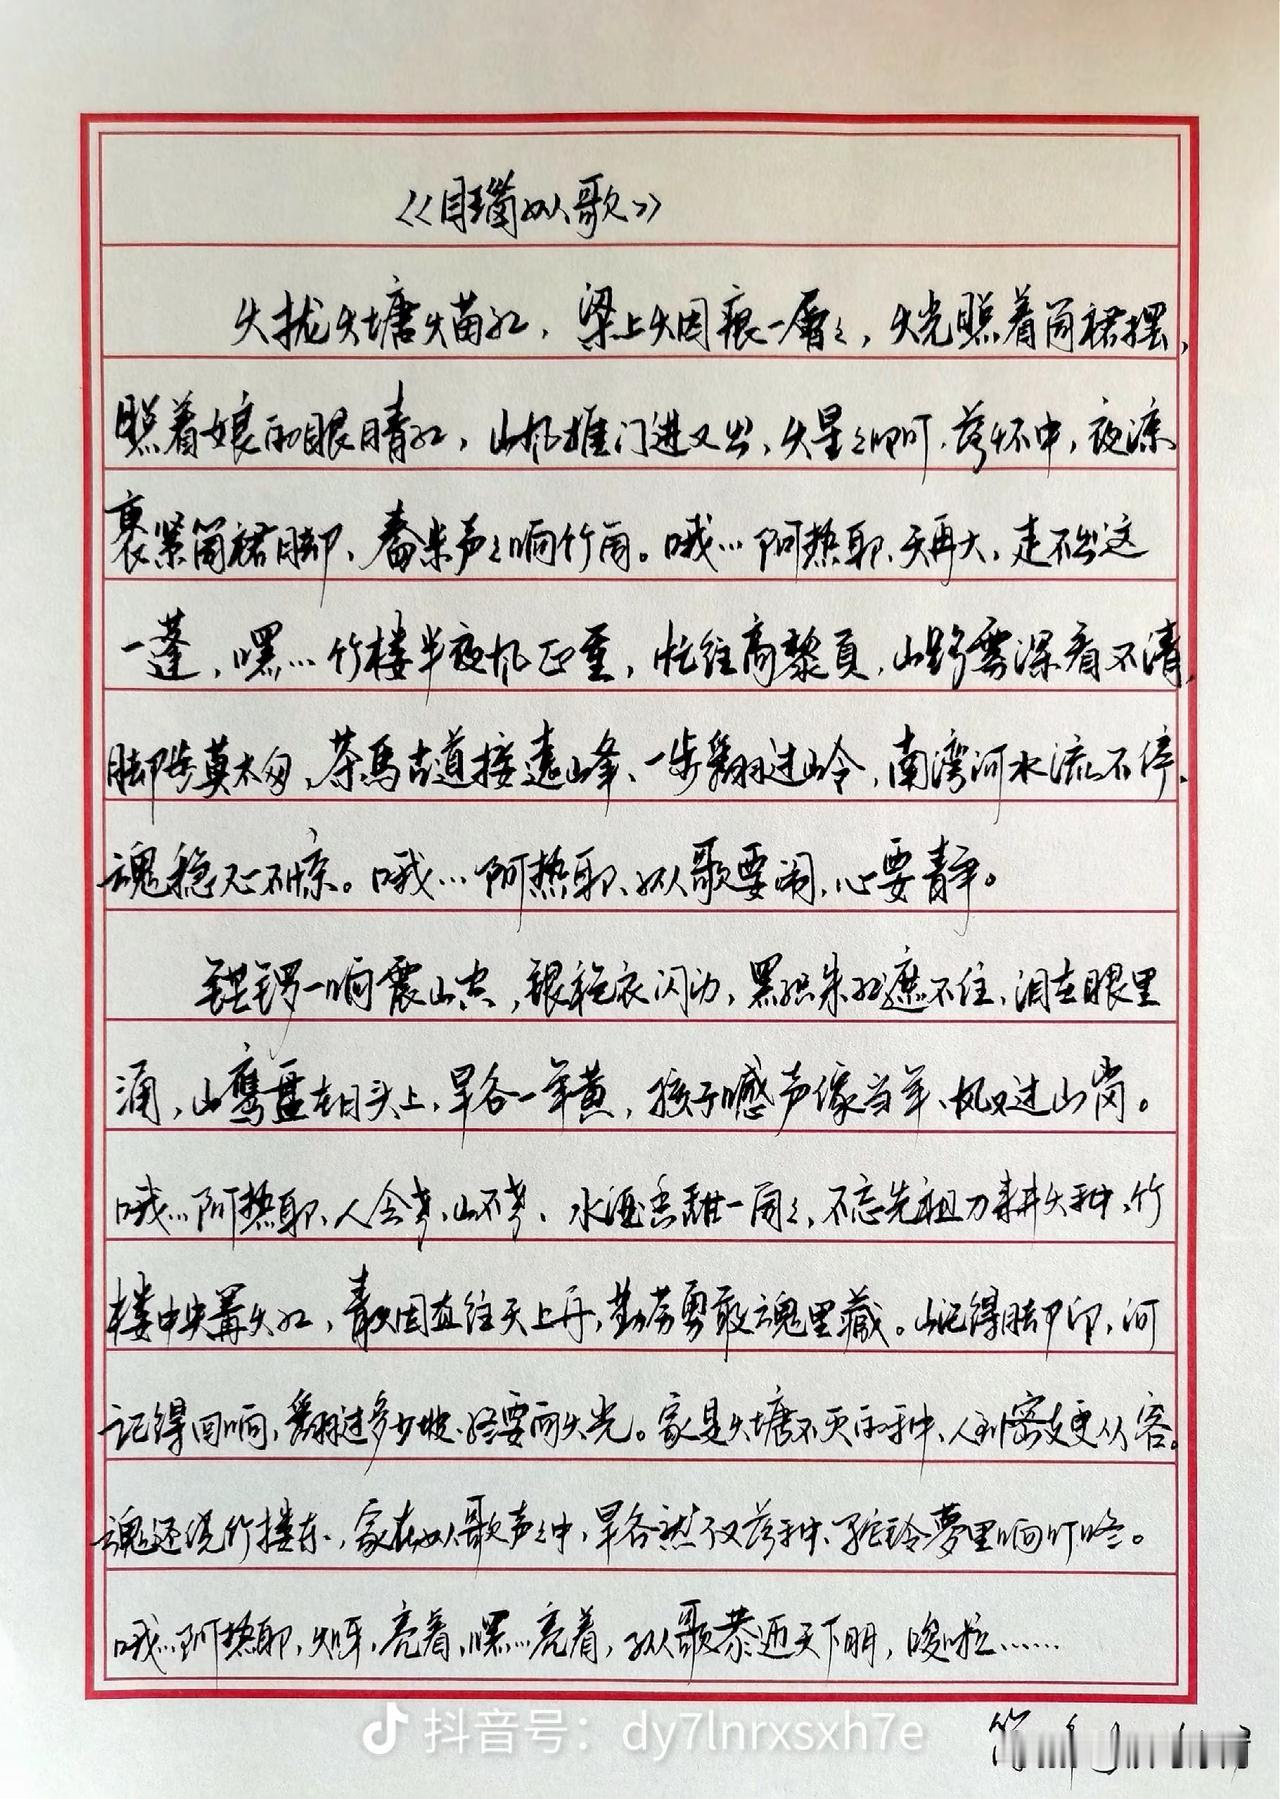 《目瑙纵歌》
火拢火塘火苗红，梁上火烟痕一层层，火光照着筒裙摆，
照着娘的眼睛红，山风推门进又出，火星星叮叮落怀中，夜凉
裹紧筒裙脚，舂米声声响竹甬。哦…阿热耶、天再大，走不出这
一蓬，嘿…竹楼半夜风正重，忙往高黎贡，山路雾深看不清，
脚步莫太匆，茶马古道接远山峰、一步翻过山岭，南湾河水流不停、
魂稳心不惊。哦…阿热耶、纵歌要闹，心要静。
铓锣一响震山谷，银袍衣闪动，黑红朱红遮不住，泪在眼里
涌，山鹰盘在日头上，旱谷一年黄，孩子喊声像当年、风又过山岗。
哦…阿热耶、人会老，山不老、水酒香甜一筒筒，不忘先祖刀耕火种，竹
楼中央篝火红，青烟直往天上升，勤劳勇敢魂里藏。山记得脚印，河
记得回响，翻过多少坡、终要向火光。家是火塘不灭的种、人到密支更从容。
魂还绕竹楼东，家在纵歌声声中，旱谷熟了又落种、驼铃夢里响叮咚。
哦…阿热耶，火呀，亮着，嘿…亮着，纵歌恭迎天下朋，嗳啦……
抖音号：dy7lnrxsxh7e